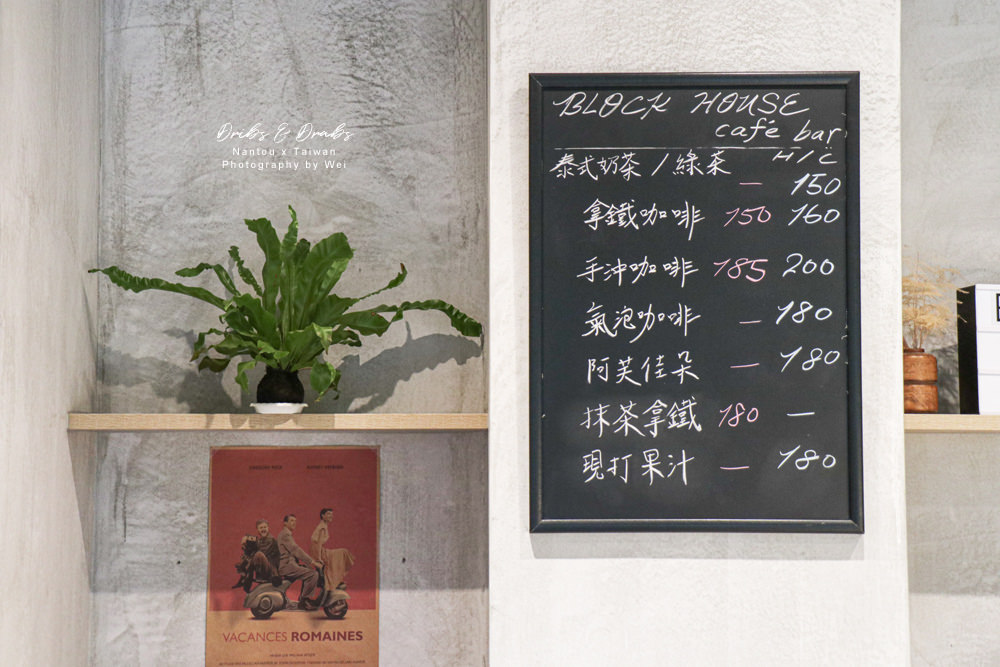 Dribs & Drabs
Nantou x Taiwan
Photography by Wei
BLOCK HOUSE
café bar
H/C
泰式奶茶/綠茶 — 150
拿鐵咖啡 150 160
手沖咖啡 185 200
氣泡咖啡 — 180
阿芙佳朵 — 180
抹茶拿鐵 180 —
現打果汁 — 180
VACANCES ROMAINES